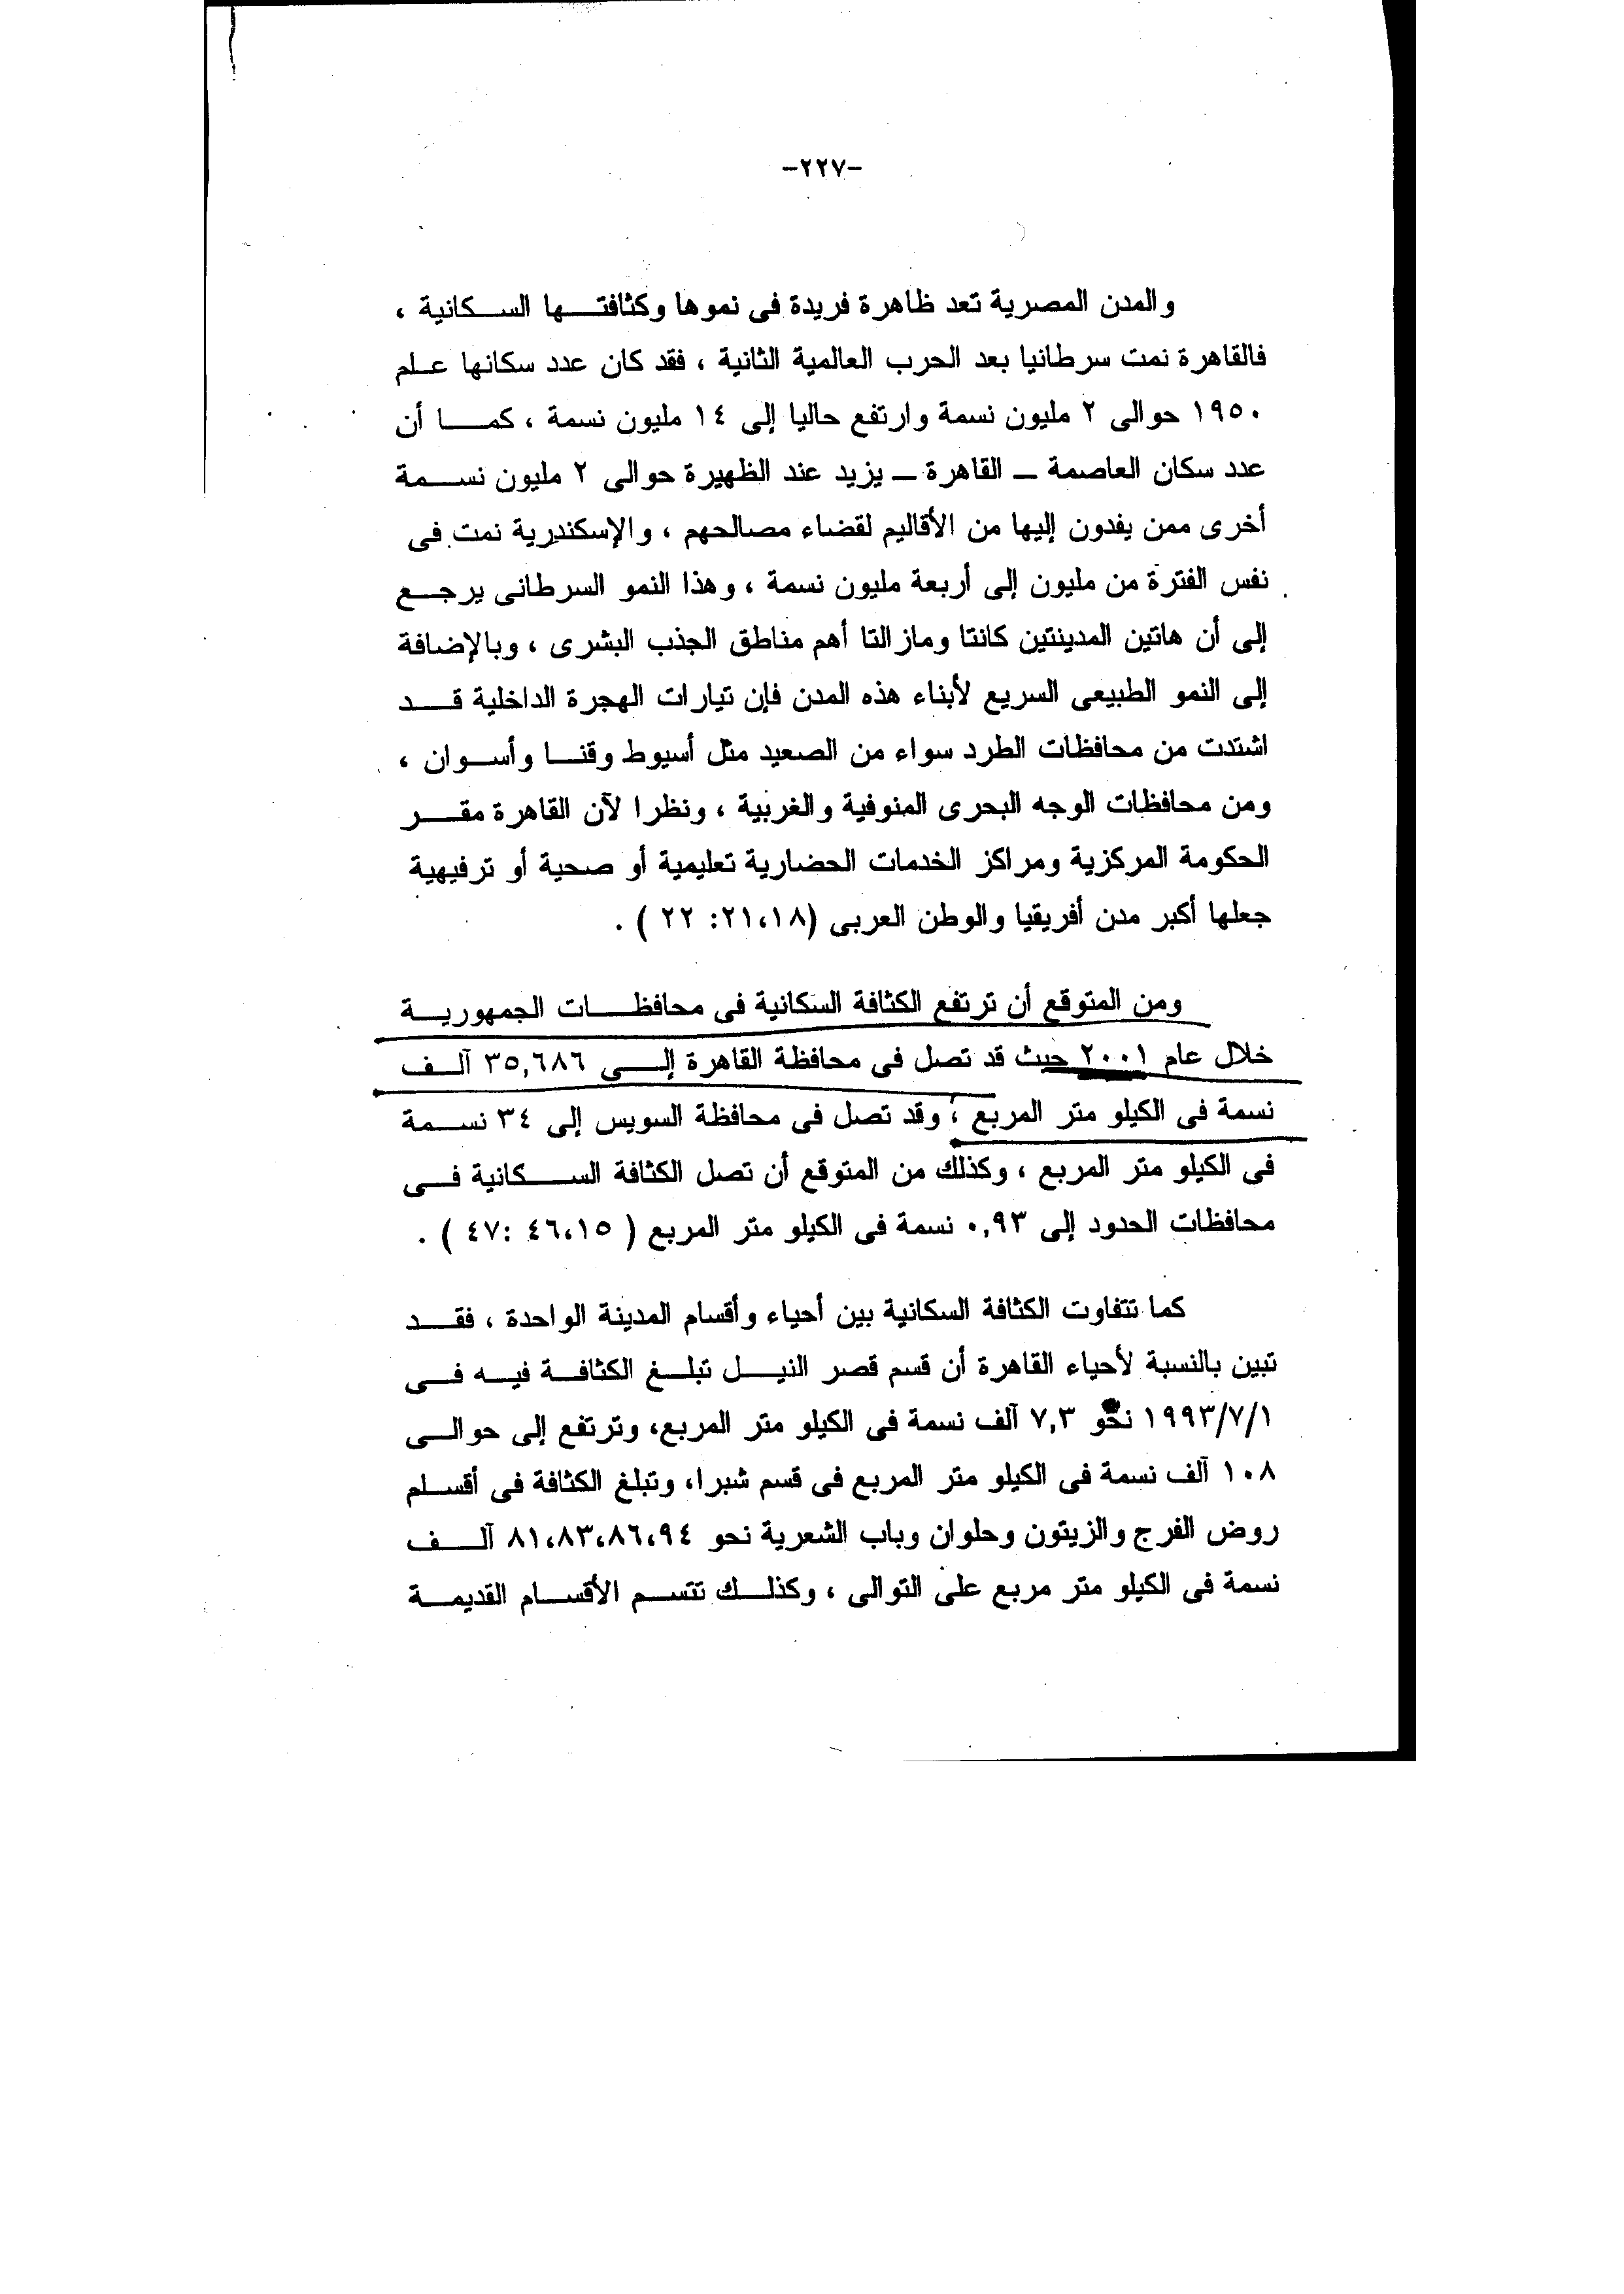 -٢٢٧-
والمدن المصرية تعد ظاهرة فريدة فى نموها وكثافتها السكانية ،
فالقاهرة نمت سرطانيا بعد الحرب العالمية الثانية ، فقد كان عدد سكانها علم
١٩٥٠ حوالى ٢ مليون نسمة وارتفع حاليا إلى ١٤ مليون نسمة ، كما أن
عدد سكان العاصمة ــ القاهرة ــ يزيد عند الظهيرة حوالى ٢ مليون نسمة
أخرى ممن يفدون إليها من الأقاليم لقضاء مصالحهم ، والإسكندرية نمت فى
نفس الفترة من مليون إلى أربعة مليون نسمة ، وهذا النمو السرطانى يرجع
إلى أن هاتين المدينتين كانتا ومازالتا أهم مناطق الجذب البشرى ، وبالإضافة
إلى النمو الطبيعى السريع لأبناء هذه المدن فإن تيارات الهجرة الداخلية قد
اشتدت من محافظات الطرد سواء من الصعيد مثل أسيوط وقنا وأسوان ،
ومن محافظات الوجه البحرى المنوفية والغربية ، ونظرا لآن القاهرة مقر
الحكومة المركزية ومراكز الخدمات الحضارية تعليمية أو صحية أو ترفيهية
جعلها أكبر مدن أفريقيا والوطن العربى (٢١،١٨: ٢٢ ) .
ومن المتوقع أن ترتفع الكثافة السكانية فى محافظات الجمهورية
خلال عام ٢٠٠١ حيث قد تصل فى محافظة القاهرة إلى ٣٥,٦٨٦ آلف
نسمة فى الكيلو متر المربع ، وقد تصل فى محافظة السويس إلى ٣٤ نسمة
فى الكيلو متر المربع ، وكذلك من المتوقع أن تصل الكثافة السكانية فى
محافظات الحدود إلى ٠,٩٣ نسمة فى الكيلو متر المربع ( ٤٦،١٥ :٤٧ ) .
كما تتفاوت الكثافة السكانية بين أحياء وأقسام المدينة الواحدة ، فقد
تبين بالنسبة لأحياء القاهرة أن قسم قصر النيل تبلغ الكثافة فيه فى
١٩٩٣/٧/١ نحو ٧,٣ آلف نسمة فى الكيلو متر المربع، وترتفع إلى حوالى
١٠٨ آلف نسمة فى الكيلو متر المربع فى قسم شبرا، وتبلغ الكثافة فى أقسلم
روض الفرج والزيتون وحلوان وباب الشعرية نحو ٨١،٨٣،٨٦،٩٤ آلف
نسمة فى الكيلو متر مربع على التوالى ، وكذلك تتسم الأقسام القديمة